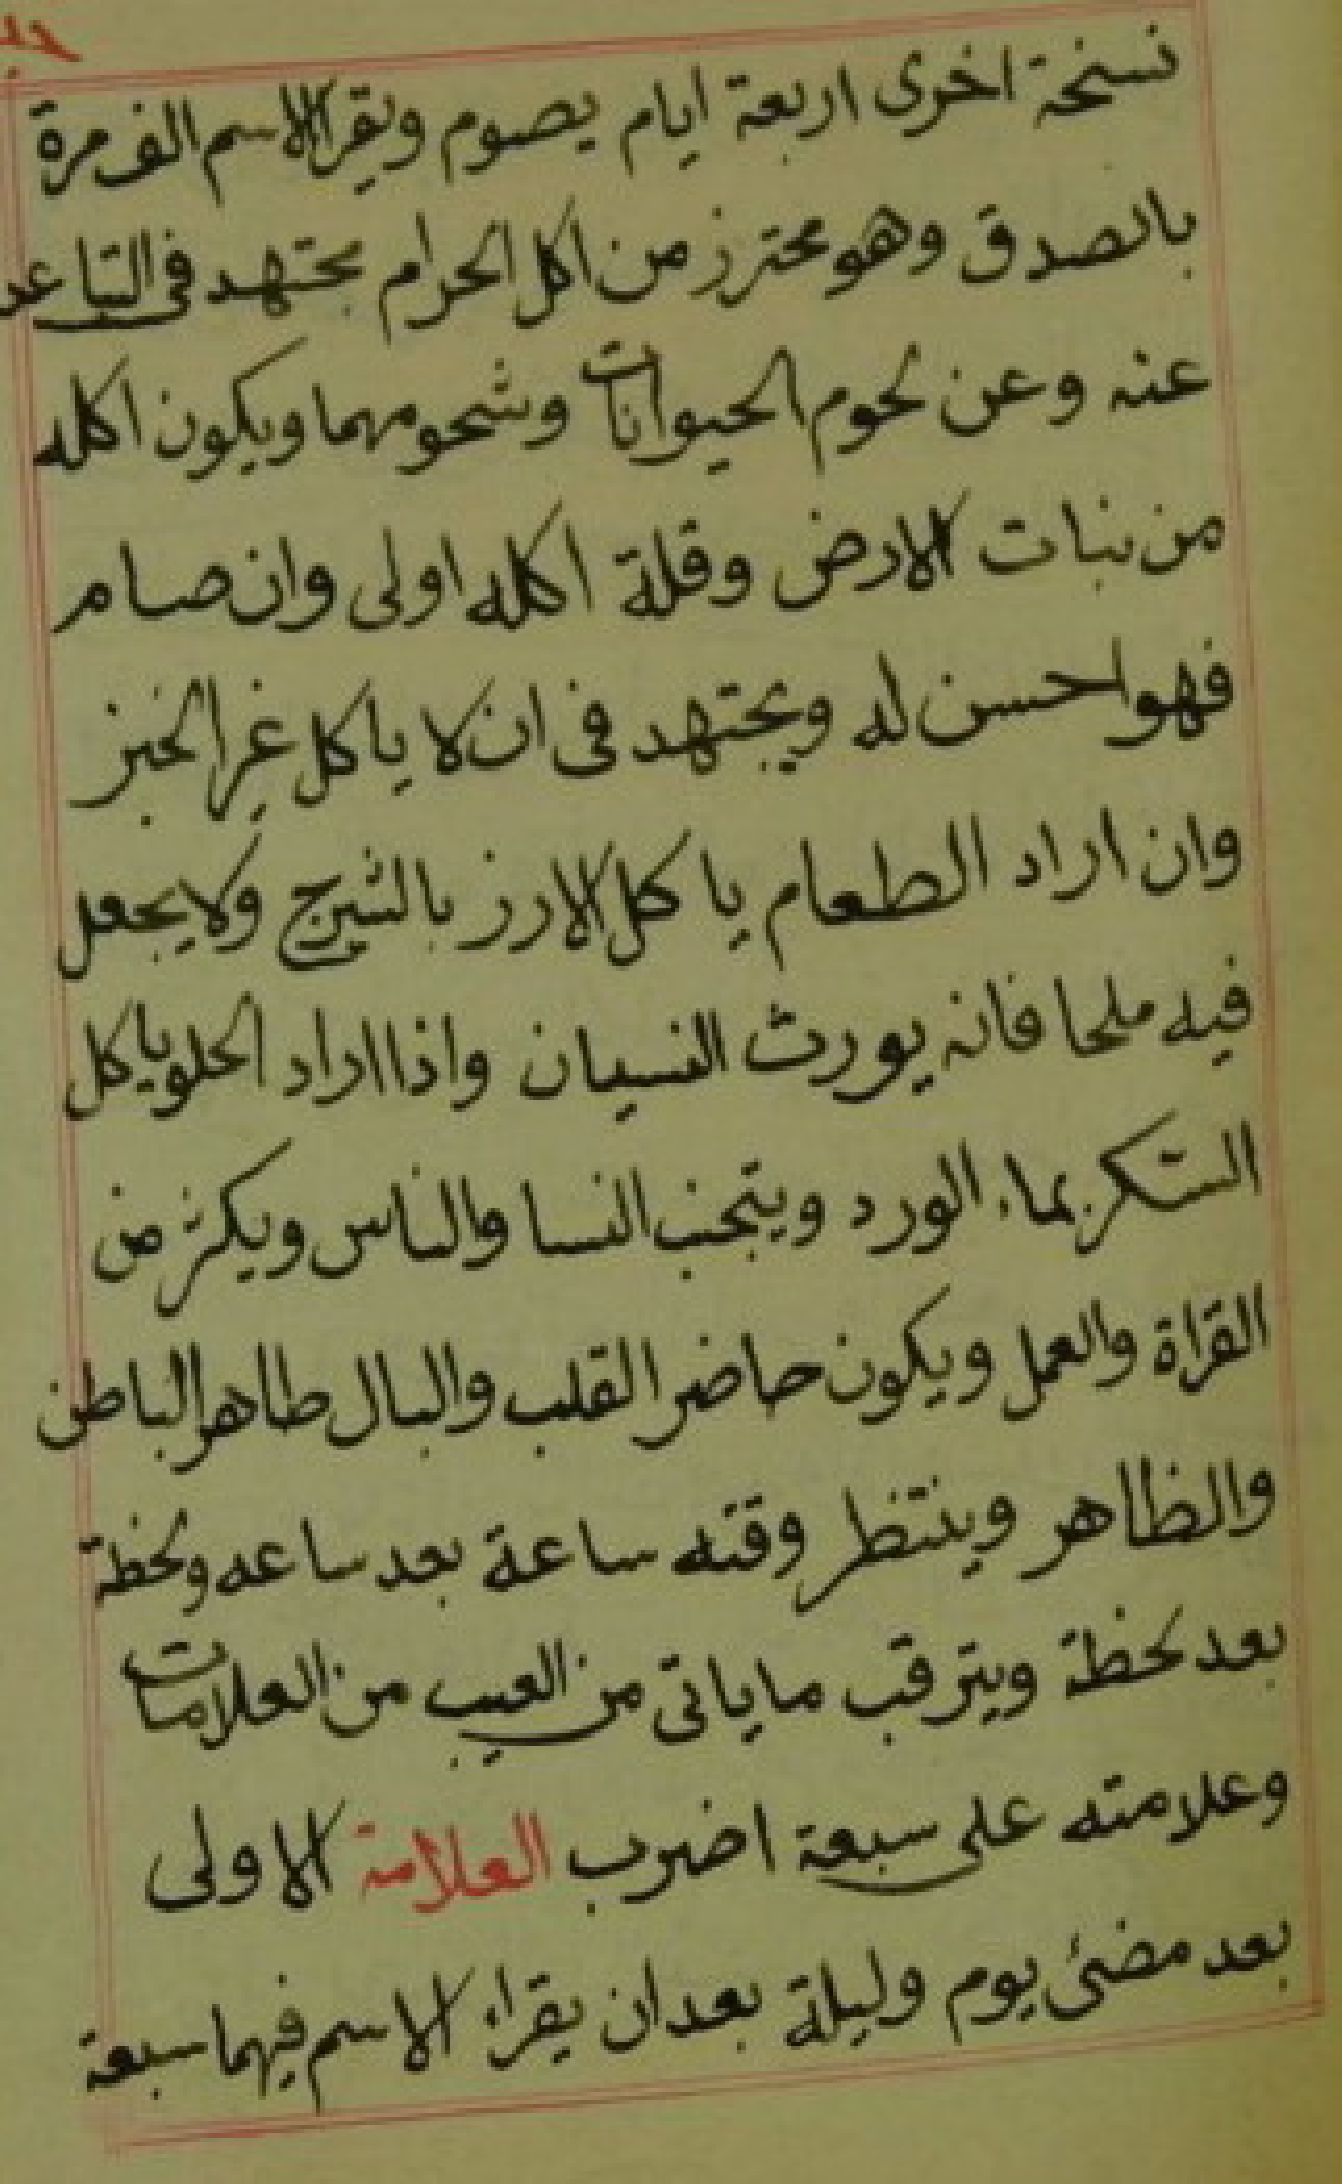 نسخة اخرى اربعة ايام يصوم ويقرا الاسم الف مرة
بالصدق وهو محترز من اكل الحرام يجتهد فى التباعد
عنه وعن لحوم الحيوانات وشحومهما ويكون اكله
من نبات الارض وقلة اكله اولى وان صام
فهو احسن له ويجتهد فى ان لا ياكل غير الخبز
وان اراد الطعام ياكل الارز بالشيرج ولا يجعل
فيه ملحا فانه يورث النسيان واذا اراد الحلو ياكل
السكر بماء الورد ويتجنب النسا والناس ويكثر من
القراة والعمل ويكون حاضر القلب والبال طاهر الباطن
والظاهر وينتظر وقته ساعة بعد ساعه ولحظة
بعد لحظة ويترقب ماياتى من الغيب من العلامات
وعلامته على سبعة اضرب العلامة الاولى
بعد مضئ يوم وليلة بعد ان يقراء الاسم فيهما سبعة